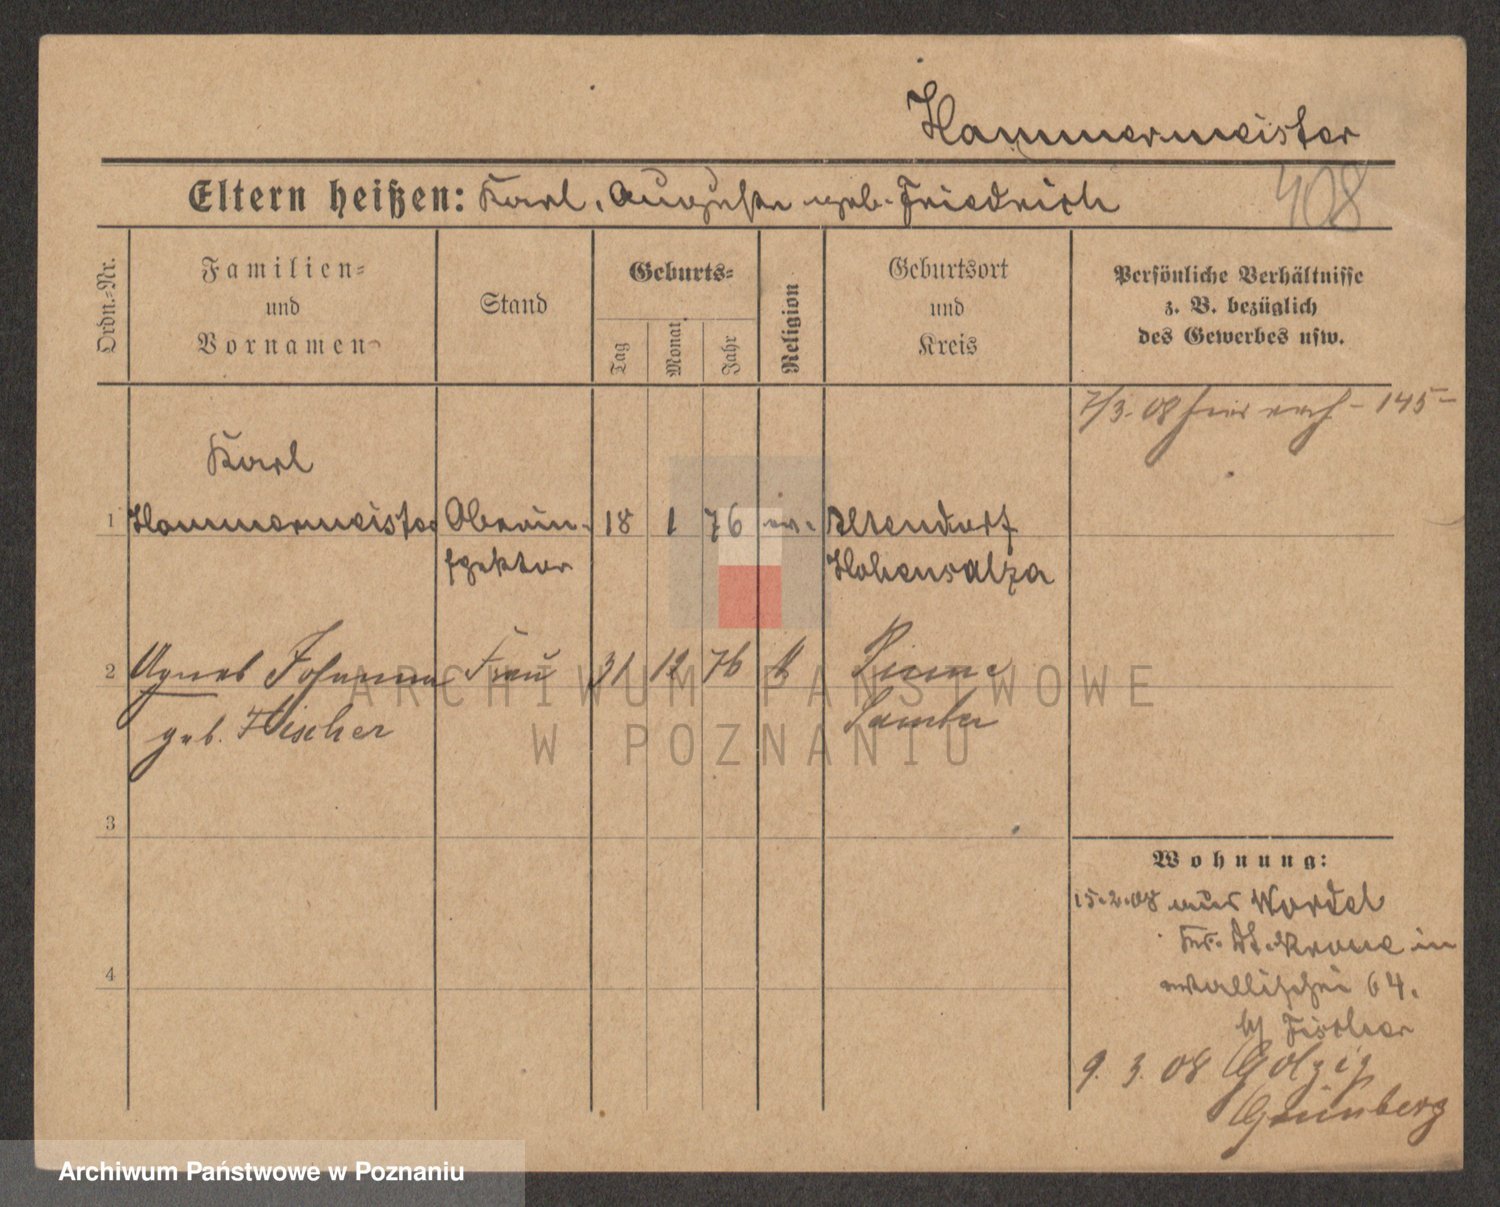 Hammermeister
Eltern heißen: Karl, Auguste geb. Friedrich
408
Ordn.-Nr.
Familien-
und
Vornamen
Stand
Geburts-
Tag
Monat
Jahr
Religion
Geburtsort
und
Kreis
Persönliche Verhältnisse
z. B. bezüglich
des Gewerbes usw.
7/3. 08 - 145 -
Karl
1 Hammermeister Oberin- 18 1 76 ev. Altendorf
spektor Hohensalza
2 Agnes Johanna Frau 31 12 76 k Pinne
geb. Fischer Samter
3
4
Wohnung:
15.2.08 aus Wordel
Kr. Dt. Krone in
Wallischei 64.
b/ Fischer
9. 3. 08 Golzig
Grünberg
ARCHIWUM PAŃSTWOWE
W POZNANIU
Archiwum Państwowe w Poznaniu